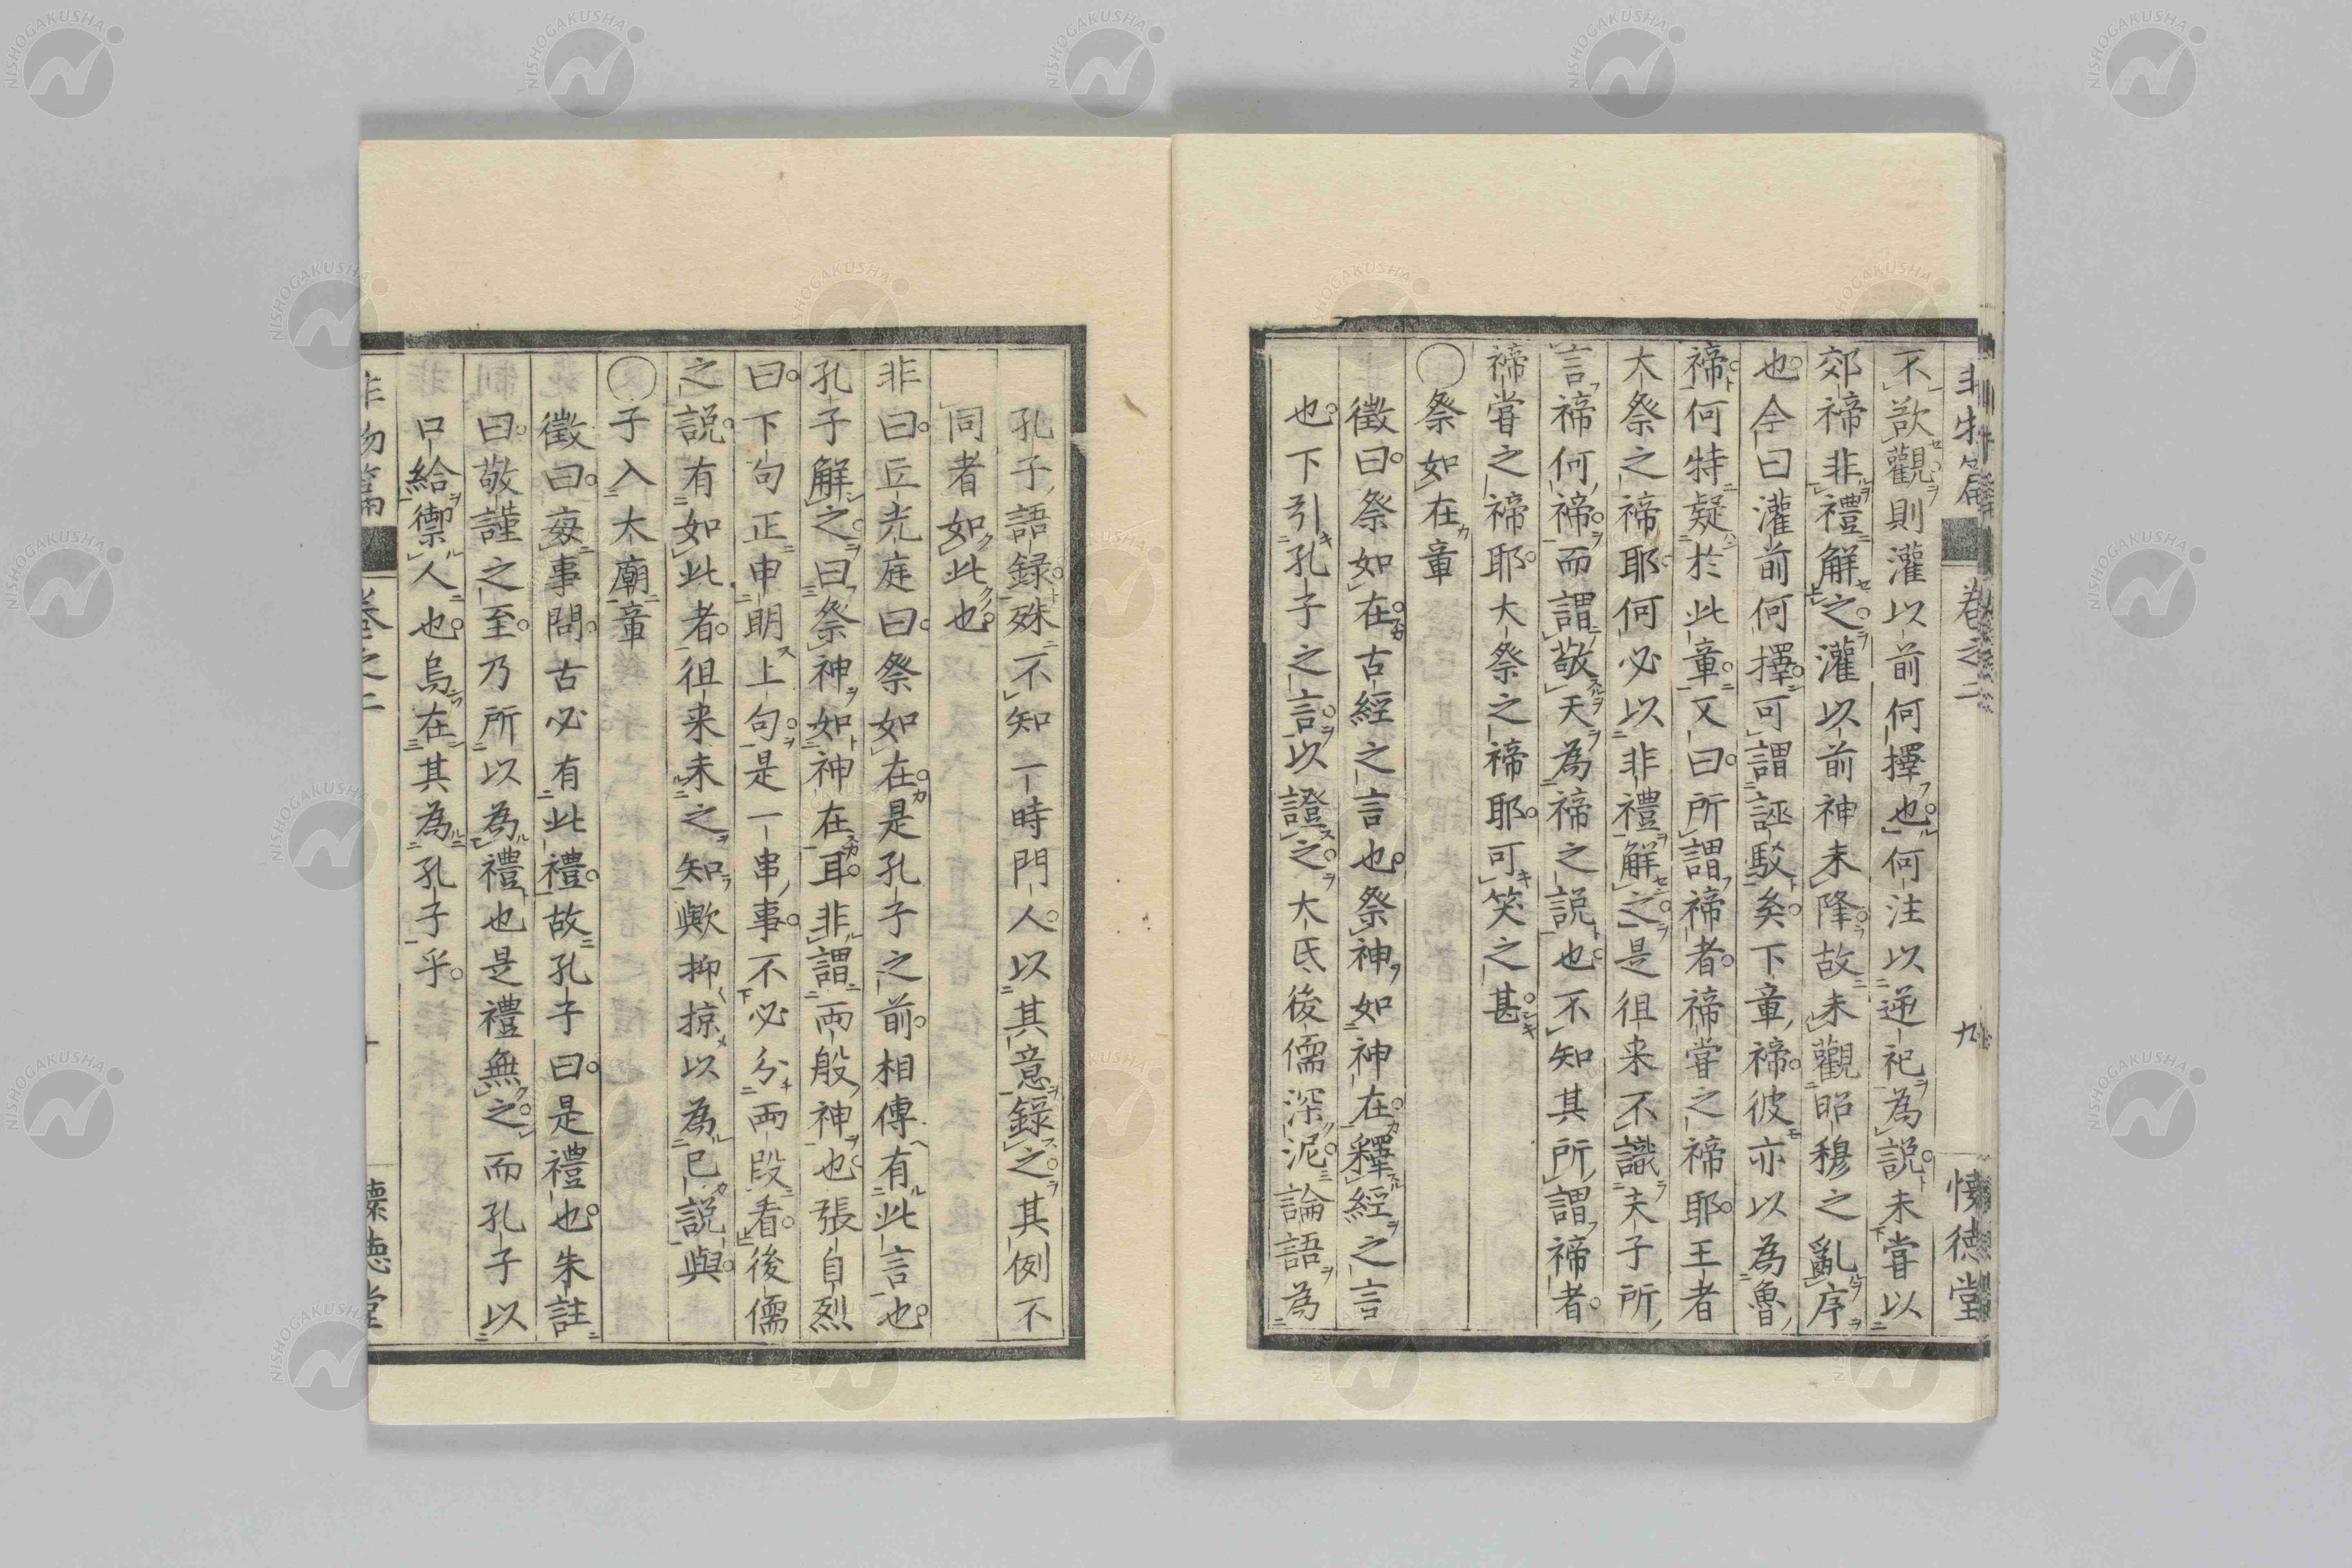 非物篇 卷之二 九 懐徳堂
不欲觀則灌以前何擇也何注以逆祀為説未嘗以
郊禘非禮解之灌以前神未降故未觀昭穆之亂序
也今曰灌前何擇可謂誣駁矣下章禘彼亦以為魯
禘何特疑於此章又曰所謂禘者禘嘗之禘耶王者
大祭之禘耶何必以非禮解之是徂来不識夫子所
言禘何禘而謂敬天為禘之説也不知其所謂禘者
禘嘗之禘耶大祭之禘耶可笑之甚
○祭如在章
徵曰祭如在古經之言也祭神如神在釋經之言
也下引孔子之言以證之大氐後儒深泥論語為
孔子語録殊不知一時門人以其意録之其例不
同者如此也
非曰丘光庭曰祭如在是孔子之前相傳有此言也
孔子解之曰祭神如神在耳非謂兩般神也張自烈
曰下句正申明上句是一串事不必分兩段看後儒
之説有如此者徂来未之知歟抑掠以為已説與
○子入大廟章
徵曰每事問古必有此禮故孔子曰是禮也朱註
曰敬謹之至乃所以為禮也是禮無之而孔子以
口給禦人也烏在其為孔子乎
非物篇 卷之二 十 懐徳堂
NISHOGAKUSHA